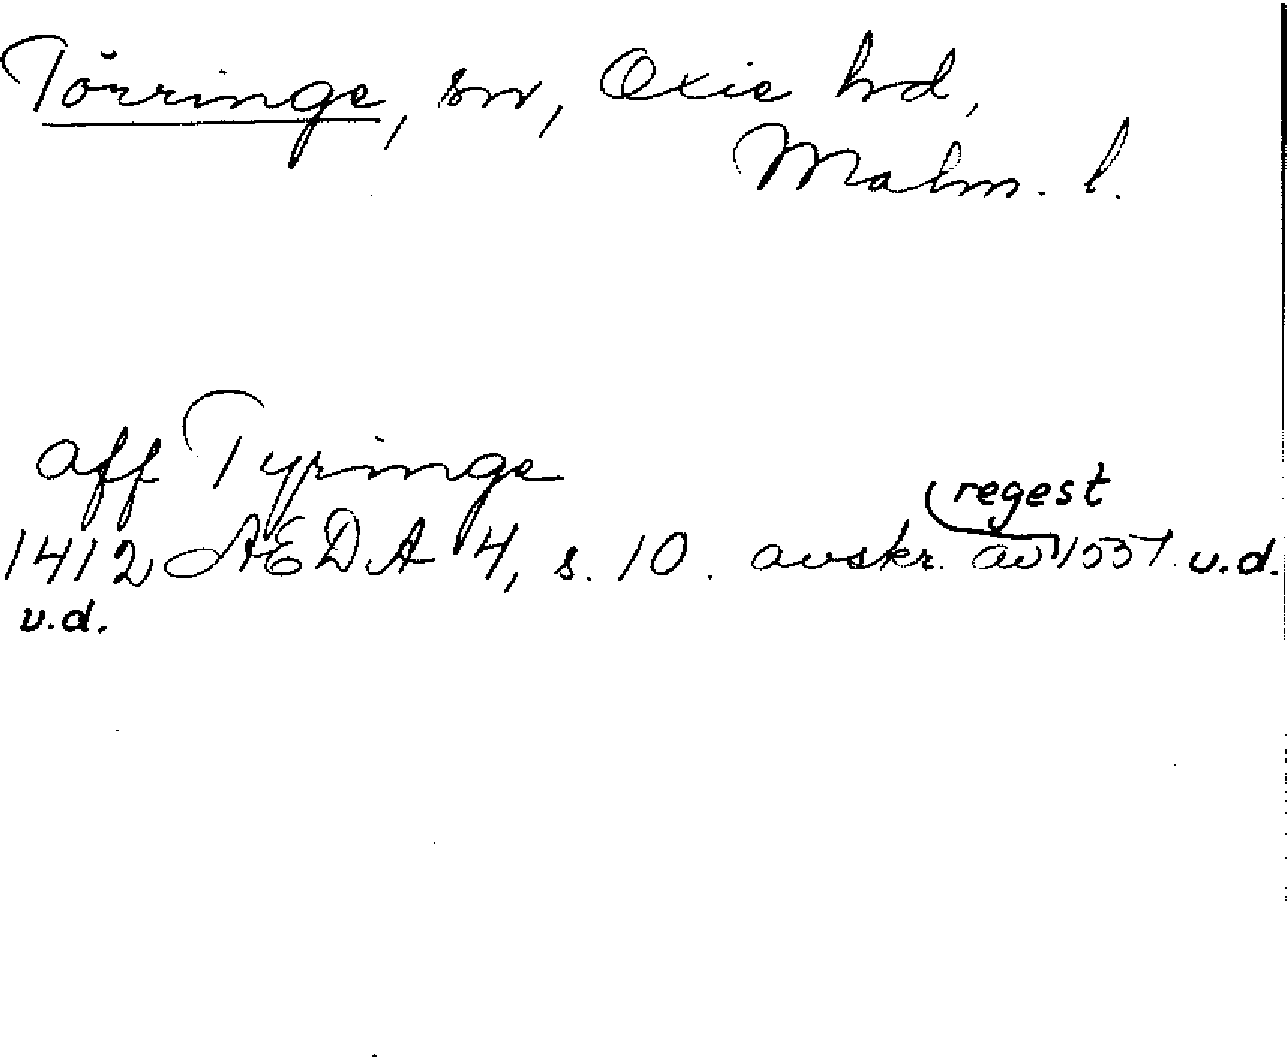 Törringe, sn, Oxie hd,
Malm. l.
aff Tyringe
regest
1412 ÆDA 4, s. 10. avskr. av 1551 u.d.
u.d.